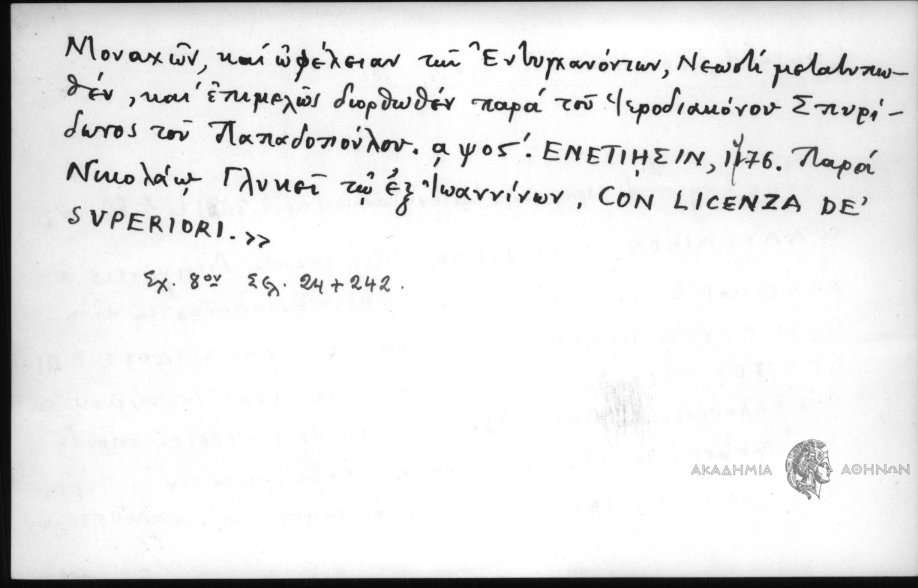 Μοναχῶν, καί ὠφέλειαν τῶν Ἐντυγχανόντων, Νεωστί μετατυπω-
θέν, καί ἐπιμελῶς διορθωθέν παρά τοῦ Ἱεροδιακόνου Σπυρί-
δωνος τοῦ Παπαδοπούλου. αψος΄. ΕΝΕΤΙΗΣΙΝ, 1776. Παρά
Νικολάῳ Γλυκεῖ τῷ ἐξ Ἰωαννίνων. CON LICENZA DE'
SVPERIORI.»
Σχ. 8ον Σελ. 24+242.
ΑΚΑΔΗΜΙΑ ΑΘΗΝΩΝ